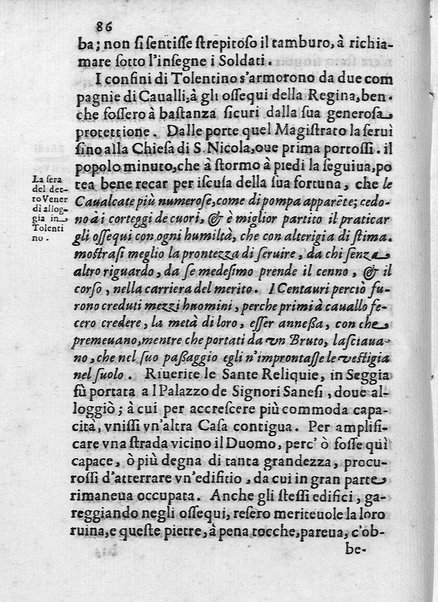 86
ba; non si sentisse strepitoso il tamburo, à richia-
mare sotto l'insegne i Soldati.
I confini di Tolentino s'armorono da due com
pagnie di Caualli, à gli ossequi della Regina, ben-
che fossero à bastanza sicuri dalla sua generosa
protettione. Dalle porte quel Magistrato la seruì
sino alla Chiesa di S. Nicola, oue prima portossi. il
popolo minuto, che à stormo à piedi la seguiua, po
La sera
del det-
to Vener
dì allog-
gia in
Tolenti
no.
tea bene recar per iscusa della sua fortuna, che le
Caualcate più numerose, come di pompa apparẽte; cedo-
no à i corteggi de cuori, & è miglior partito il praticar
gli ossequi con ogni humiltà, che con alterigia di stima.
mostrasi meglio la prontezza di seruire, da chi senza
altro riguardo, da se medesimo prende il cenno, & il
corso, nella carriera del merito. I Centauri perciò fu-
rono creduti mezzi huomini, perche primi à cauallo fe-
cero credere, la metà di loro, esser annessa, con che
premeuano, mentre che portati da vn Bruto, lasciaua-
no, che nel suo passaggio egli n'improntasse le vestigia
nel suolo. Riuerite le Sante Reliquie, in Seggia
fù portata a l Palazzo de Signori Sanesi, doue al-
loggiò; à cui per accrescere più commoda capa-
cità, vnissi vn'altra Casa contigua. Per amplifi-
care vna strada vicino il Duomo, perc' ò fosse quì
capace, ò più degna di tanta grandezza, procu-
rossi d'atterrare vn'edifitio, da cui in gran parte
rimaneua occupata. Anche gli stessi edifici, ga-
reggiando negli ossequi, resero meriteuole la loro
ruina, e queste pietre, à pena tocche, pareua, c'ob-
be-